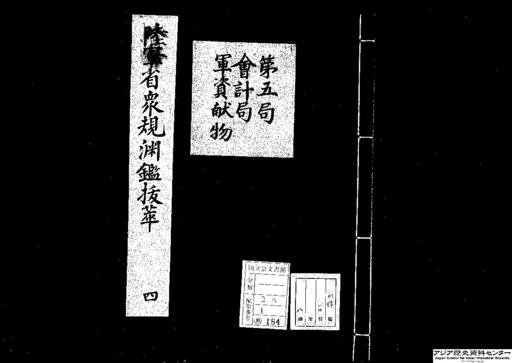 第五局
會計局
軍資献物
陸軍省衆規渕鑑抜萃
四
国立公文書館
分類
配架番号
184
アジア歴史資料センター
Japan Center for Asian Historical Records